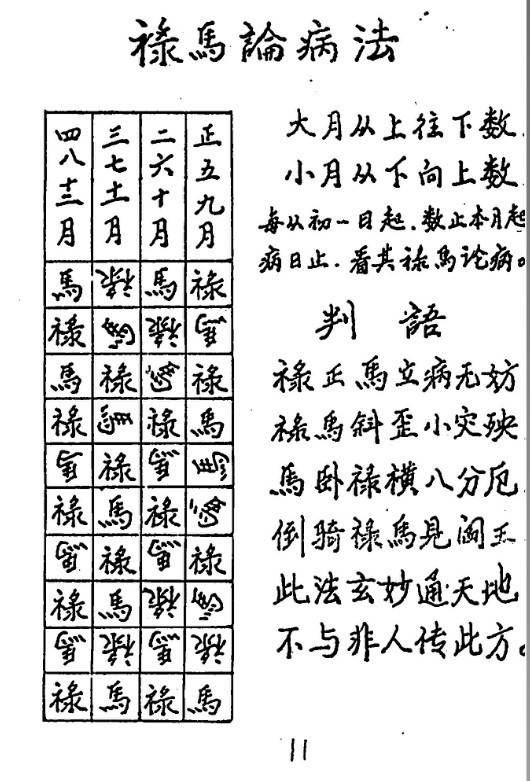 祿馬論病法
大月从上往下数
小月从下向上数
每从初一日起.数止本月起
病日止.看其祿馬论病
判語
祿正馬立病无妨
祿馬斜歪小灾殃
馬卧祿橫八分厄
倒骑祿馬見阎王
此法玄妙通天地
不与非人传此方。
四八十二月 三七十一月 二六十月 正五九月
馬 祿 馬 祿
祿 馬 祿 馬
馬 祿 馬 祿
祿 馬 祿 馬
馬 祿 馬 馬
祿 馬 祿 馬
馬 祿 馬 祿
祿 馬 祿 馬
馬 祿 馬 祿
祿 馬 祿 馬
11